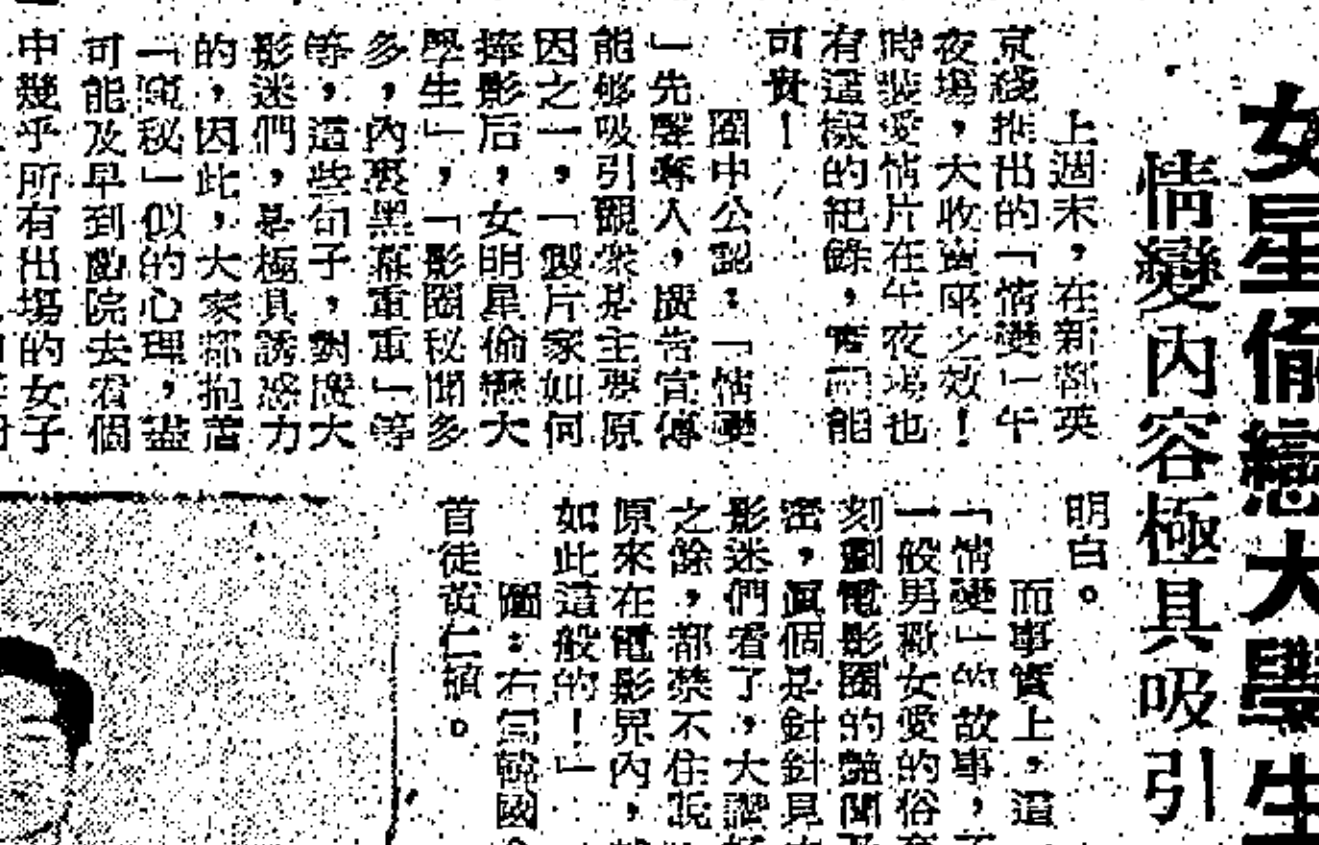 女星偷戀大學生
情變內容極具吸引
上週末，在新都英
京綫推出的「情變」午
夜場，大收賣座之效！
時裝愛情片在午夜場也
有這樣的紀錄，實而能
可貴！
圈中公認：「情變
」先聲奪人，廣告宣傳
能够吸引觀衆是主要原
因之一，「製片家如何
捧影后，女明星偷戀大
學生」，「影圈秘聞多
多，內裏黑幕重重」等
等，這些句子，對廣大
影迷們，是極具誘惑力
的，因此，大家都抱着
「窺秘」似的心理，盡
可能及早到戲院去看個
中幾乎所有出場的女子
明白。
而事實上，這
「情變」的故事，
一般男歡女愛的俗
刻劃電影圈的艷聞
密，眞個是針針見
影迷們看了，大
之餘，都禁不住說
原來在電影界內，
如此這般的！」
圖：右爲韓國
首徒黃仁植。